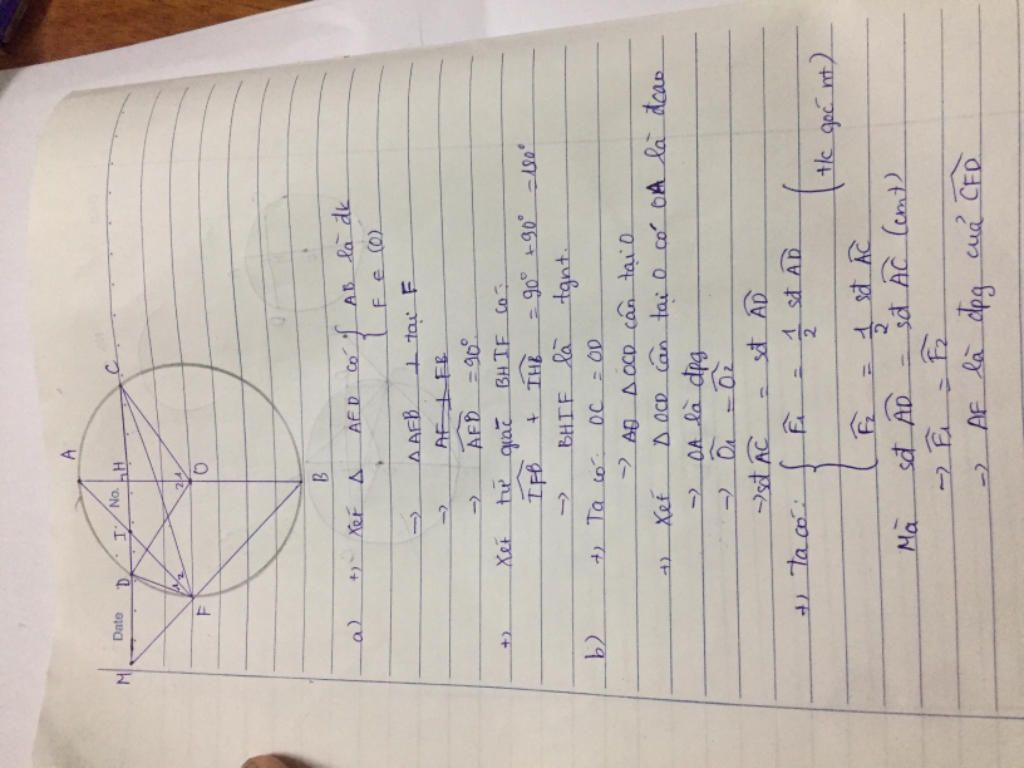 Date No.
A
M D I H C
1 2
2 1
F O
B
a) +) Xét Δ AFD có { AB là đk
{ F ∈ (O)
→ Δ AFB ⊥ tại F
→ AF ⊥ FB
→ AFB = 90°
+) Xét tứ giác BHIF có:
IFB + IHB = 90° + 90° = 180°
→ BHIF là tgnt.
b) +) Ta có: OC = OD
→ Δ OCD cân tại O
+) Xét Δ OCD cân tại O có OA là đcao
→ OA là đpg
→ Ô1 = Ô2
→ sđ AC = sđ AD
+) Ta có: { F1 = 1/2 sđ AD
{ F2 = 1/2 sđ AC (t/c góc nt)
Mà sđ AD = sđ AC (cmt)
→ F1 = F2
→ AF là đpg của CFD